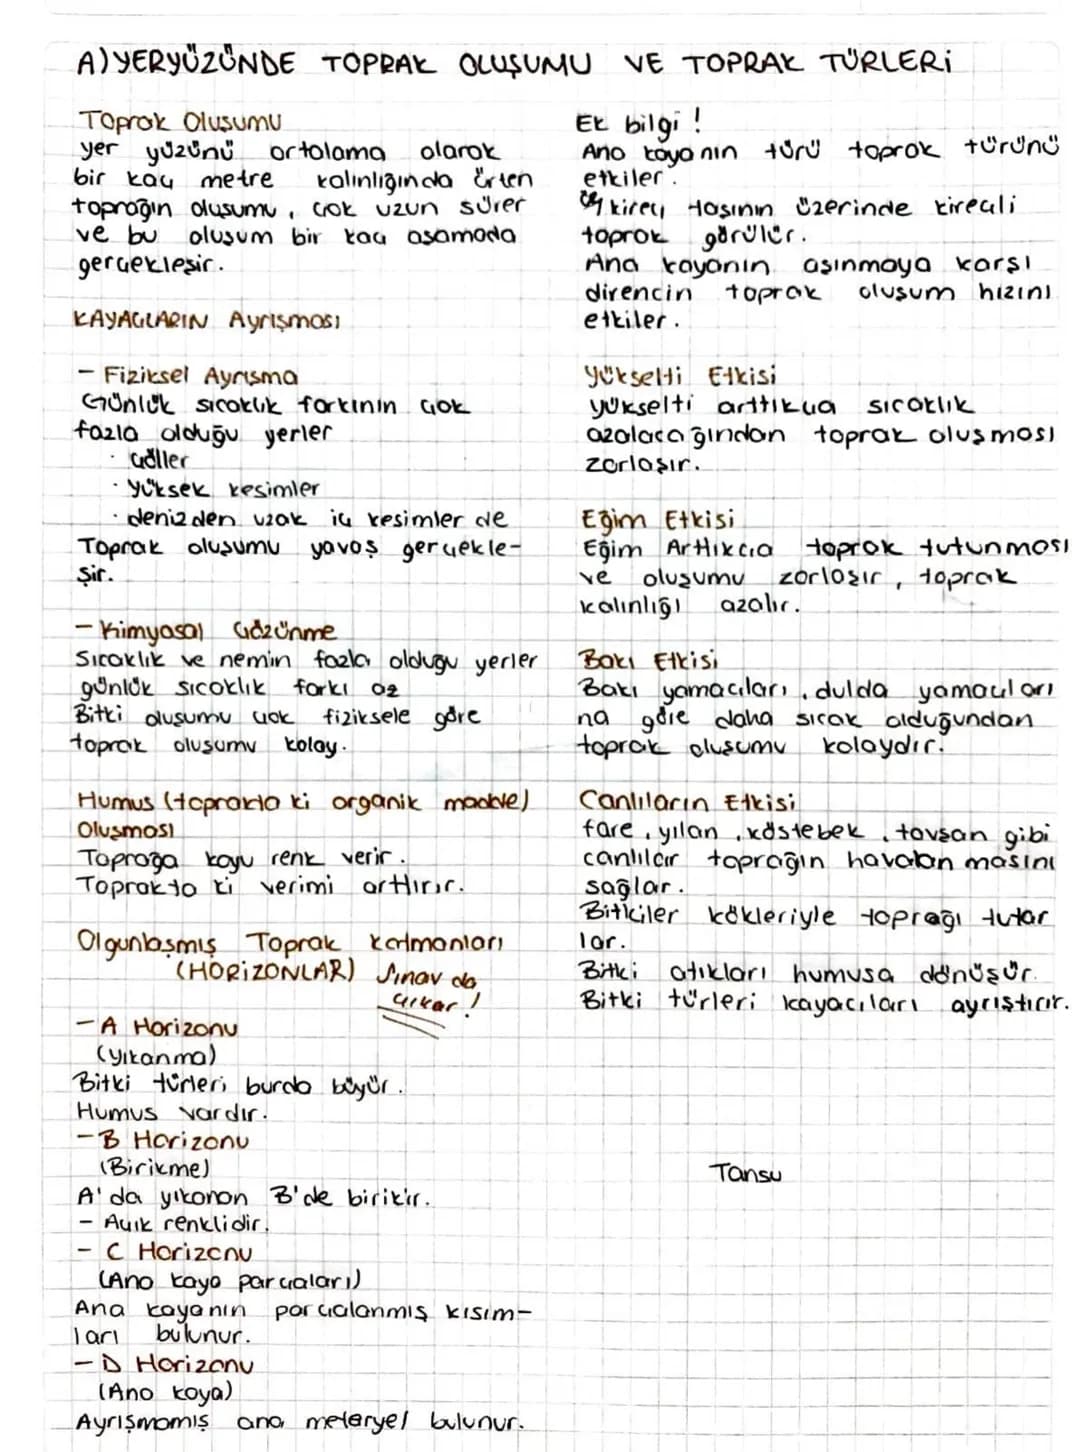 A) YERYÜZÜNDE TOPRAK OLUŞUMU VE TOPRAK TÜRLERİ
Toprak Oluşumu
yer yüzünü ortalama olarak
bir kaç metre kalınlığında örten
toprağın oluşumu, çok uzun sürer
ve bu oluşum bir kaç aşamada
gerçekleşir.
KAYAÇLARIN Ayrışması
- Fiziksel Ayrışma
Günlük sıcaklık farkının çok
fazla olduğu yerler
· Çöller
· Yüksek kesimler
· denizden uzak iç kesimler de
Toprak oluşumu yavaş gerçekle-
şir.
- Kimyasal Çözünme
Sıcaklık ve nemin fazla olduğu yerler
günlük sıcaklık farkı az
Bitki oluşumu çok fiziksele göre
toprak oluşumu kolay.
Humus (toprakta ki organik madde)
Oluşması
Toprağa koyu renk verir.
Toprakta ki verimi arttırır.
Olgunlaşmış Toprak Katmanları
(HORİZONLAR) Sınav da
çıkar!
- A Horizonu
(Yıkanma)
Bitki türleri burda büyür.
Humus vardır.
- B Horizonu
(Birikme)
A'da yıkanan B'de birikir.
- Açık renklidir.
- C Horizonu
(Ana kaya parçaları)
Ana kayanın parçalanmış kısım-
ları bulunur.
- D Horizonu
(Ana kaya)
Ayrışmamış ana meteryel bulunur.
Ek bilgi!
Ana kayanın türü toprak türünü
etkiler.
kireç taşının üzerinde kireçli
toprak görülür.
Ana kayanın aşınmaya karşı
direncin toprak oluşum hızını
etkiler.
Yükselti Etkisi
yükselti arttıkça sıcaklık
azalacağından toprak oluşması
zorlaşır.
Eğim Etkisi
Eğim Arttıkca toprak tutunması
ve oluşumu zorlaşır, toprak
kalınlığı azalır.
Bakı Etkisi
Bakı yamaçları, dulda yamaçları
na göre daha sıcak olduğundan
toprak oluşumu kolaydır.
Canlıların Etkisi
fare, yılan, köstebek, tavşan gibi
canlılar toprağın havalanmasını
sağlar.
Bitkiler kökleriyle toprağı tutar
lar.
Bitki atıkları humusa dönüşür.
Bitki türleri kayaçıları ayrıştırır.
Tansu